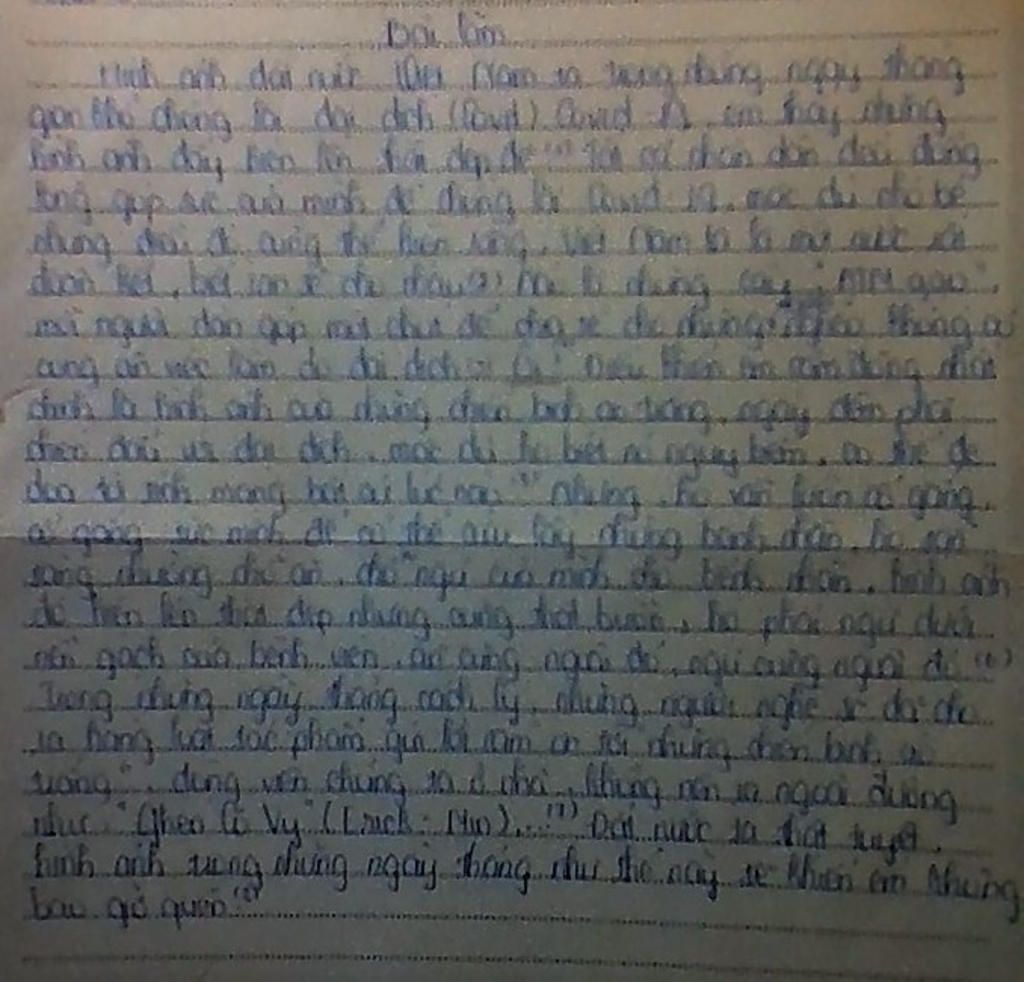 Bài làm
Hình ảnh đất nước Việt Nam ta trong những ngày tháng
gian khó chống lại đại dịch (Covid) Covid 19, em thấy những
hình ảnh đấy hiện lên thật đẹp đẽ (1) Tất cả nhân dân đều đồng
lòng góp sức của mình để chống lại Covid 19, mặc dù nhỏ bé
nhưng điều đó cũng thể hiện rằng, Việt Nam ta là một nước rất
đoàn kết, biết san sẻ cho nhau (2) Đó là những cây "ATM gạo",
mỗi người dân góp một chút để chia sẻ cho những người không có
công ăn việc làm do đại dịch Điều khiến em cảm động nhất
chính là hình ảnh của những chiến binh áo trắng, ngày đêm phải
chiến đấu với đại dịch, mặc dù họ biết nó nguy hiểm, có thể đe
dọa tới sinh mạng bất cứ lúc nào Nhưng, họ vẫn luôn cố gắng,
cố gắng sức mình để có thể cứu lấy những bệnh nhân, họ sẵn
sàng nhường chỗ ăn, chỗ ngủ của mình cho bệnh nhân, hình ảnh
đó hiện lên thật đẹp nhưng cũng thật buồn, họ phải ngủ dưới
nền gạch của bệnh viện, ăn cũng ngoài đó, ngủ cũng ngoài đó (6)
Trong những ngày tháng cách ly, những người nghệ sĩ đã cho
ra hàng loạt tác phẩm gửi lời cảm ơn tới những chiến binh áo
trắng", động viên chúng ta ở nhà, không nên ra ngoài đường
như: "Ghen Cô Vy" (Erick - Min)... (7) Đất nước ta thật tuyệt,
hình ảnh trong những ngày tháng như thế này sẽ khiến em không
bao giờ quên (8)